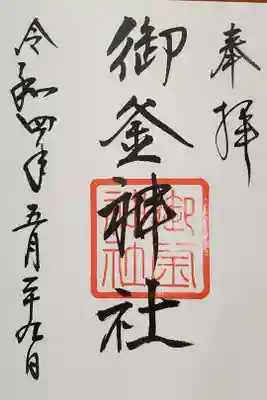 奉拝
御釜神社
令和四年五月二十九日